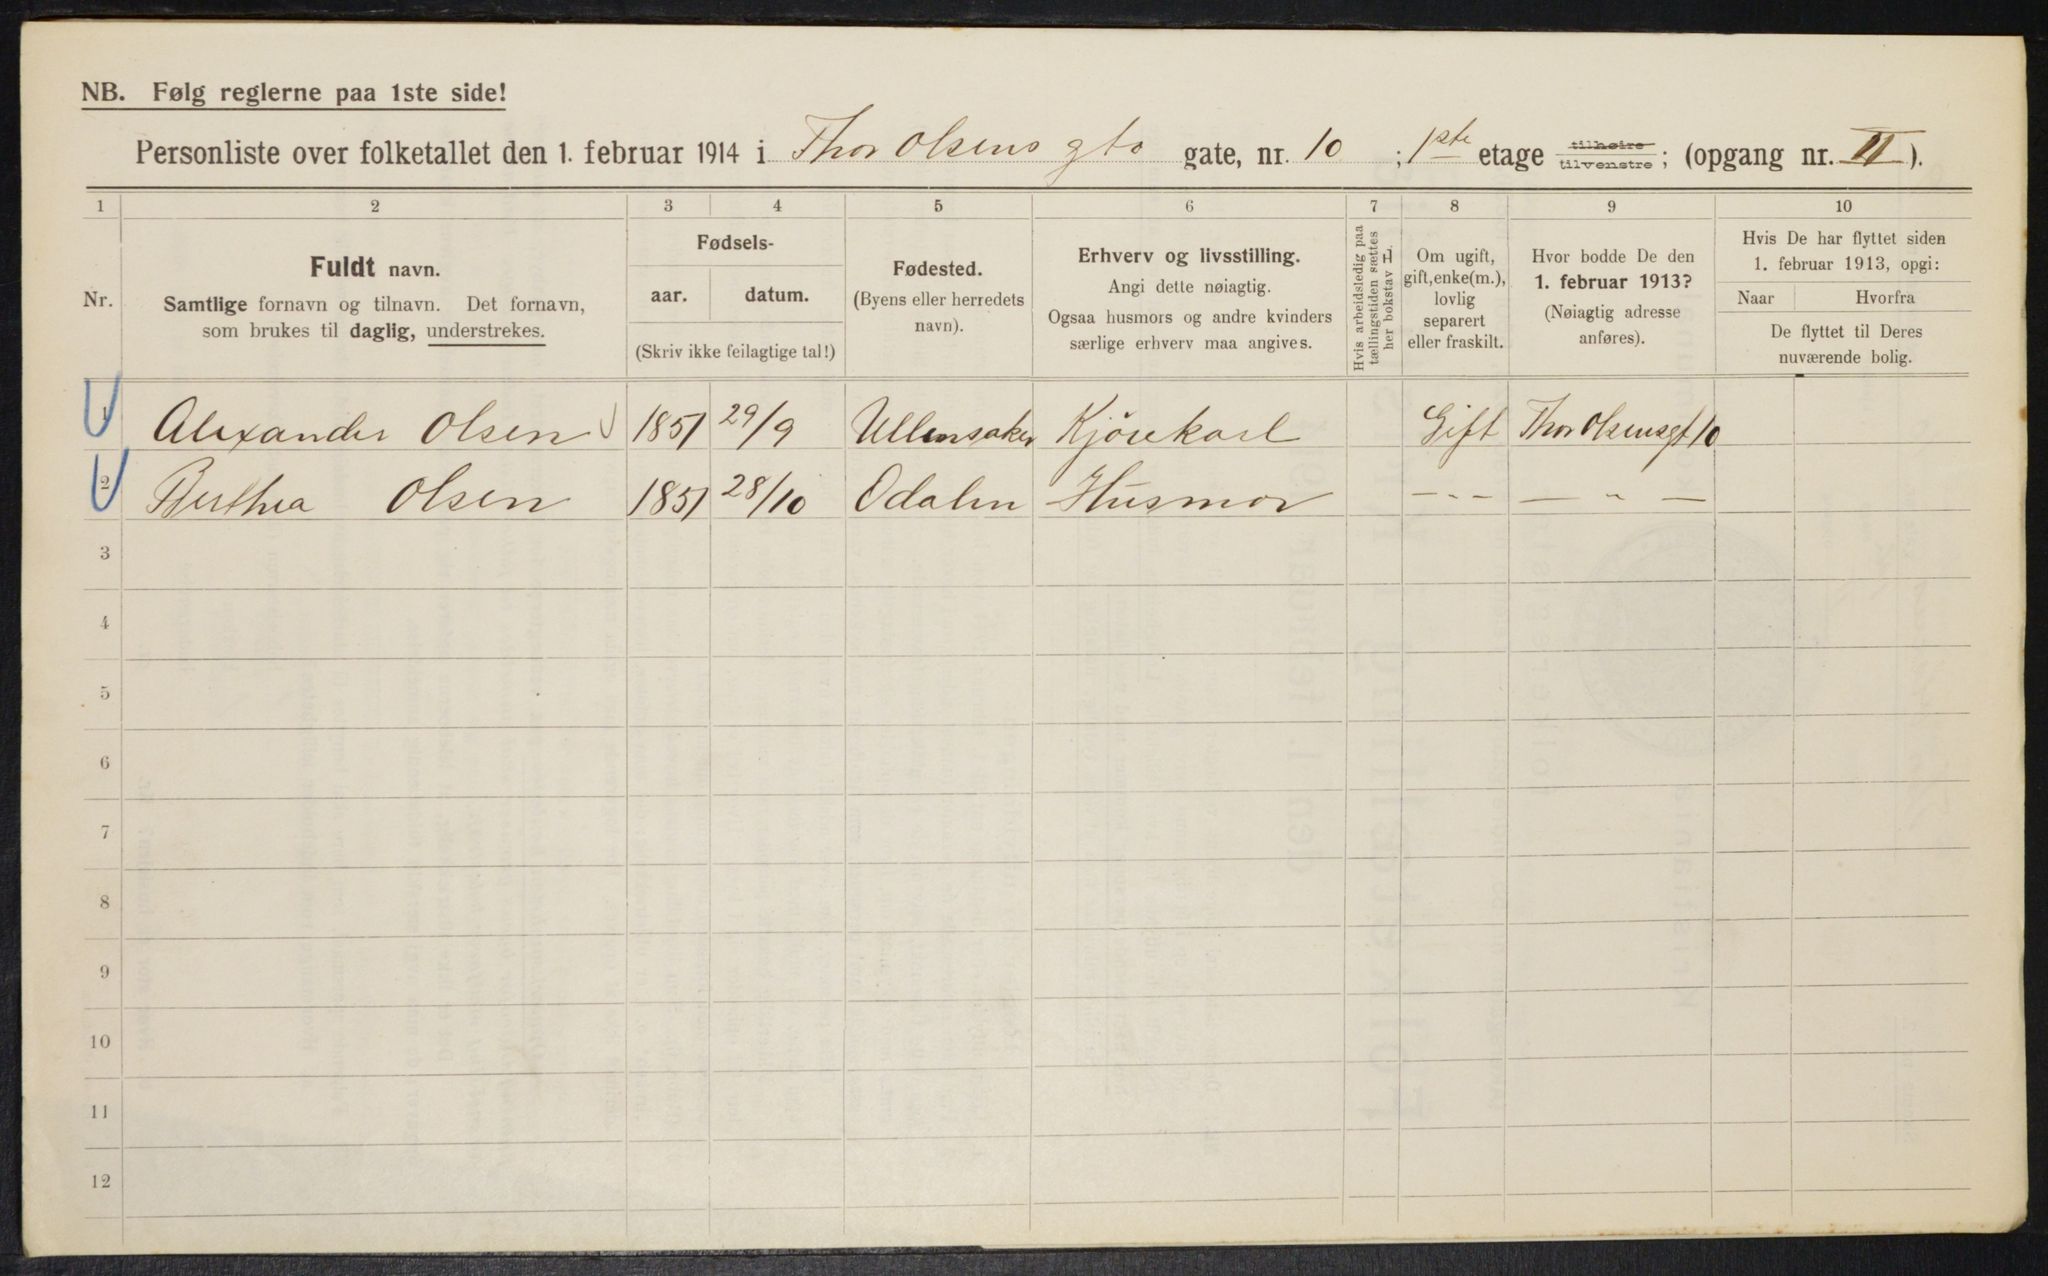 NB. Følg reglerne paa 1ste side!
Personliste over folketallet den 1. februar 1914 i Thor Olsens gto gate, nr. 10 ; 1ste etage tilhøire tilvenstre ; (opgang nr. II ).
1 2 3 4 5 6 7 8 9 10
Nr.
Fuldt navn.
Samtlige fornavn og tilnavn. Det fornavn,
som brukes til daglig, understrekes.
Fødsels-
aar. datum.
(Skriv ikke feilagtige tal!)
Fødested.
(Byens eller herredets
navn).
Erhverv og livsstilling.
Angi dette nøiagtig.
Ogsaa husmors og andre kvinders
særlige erhverv maa angives.
Hvis arbeidsledig paa
tællingstiden sættes
her bokstav L.
Om ugift,
gift, enke(m.),
lovlig
separert
eller fraskilt.
Hvor bodde De den
1. februar 1913?
(Nøiagtig adresse
anføres).
Hvis De har flyttet siden
1. februar 1913, opgi:
Naar Hvorfra
De flyttet til Deres
nuværende bolig.
1 Alexander Olsen 1851 29/9 Ullensaker Kjørekarl Gift Thor Olsensgt 10
2 Berthea Olsen 1851 28/10 Odalen Husmor - - - — " —
3
4
5
6
7
8
9
10
11
12